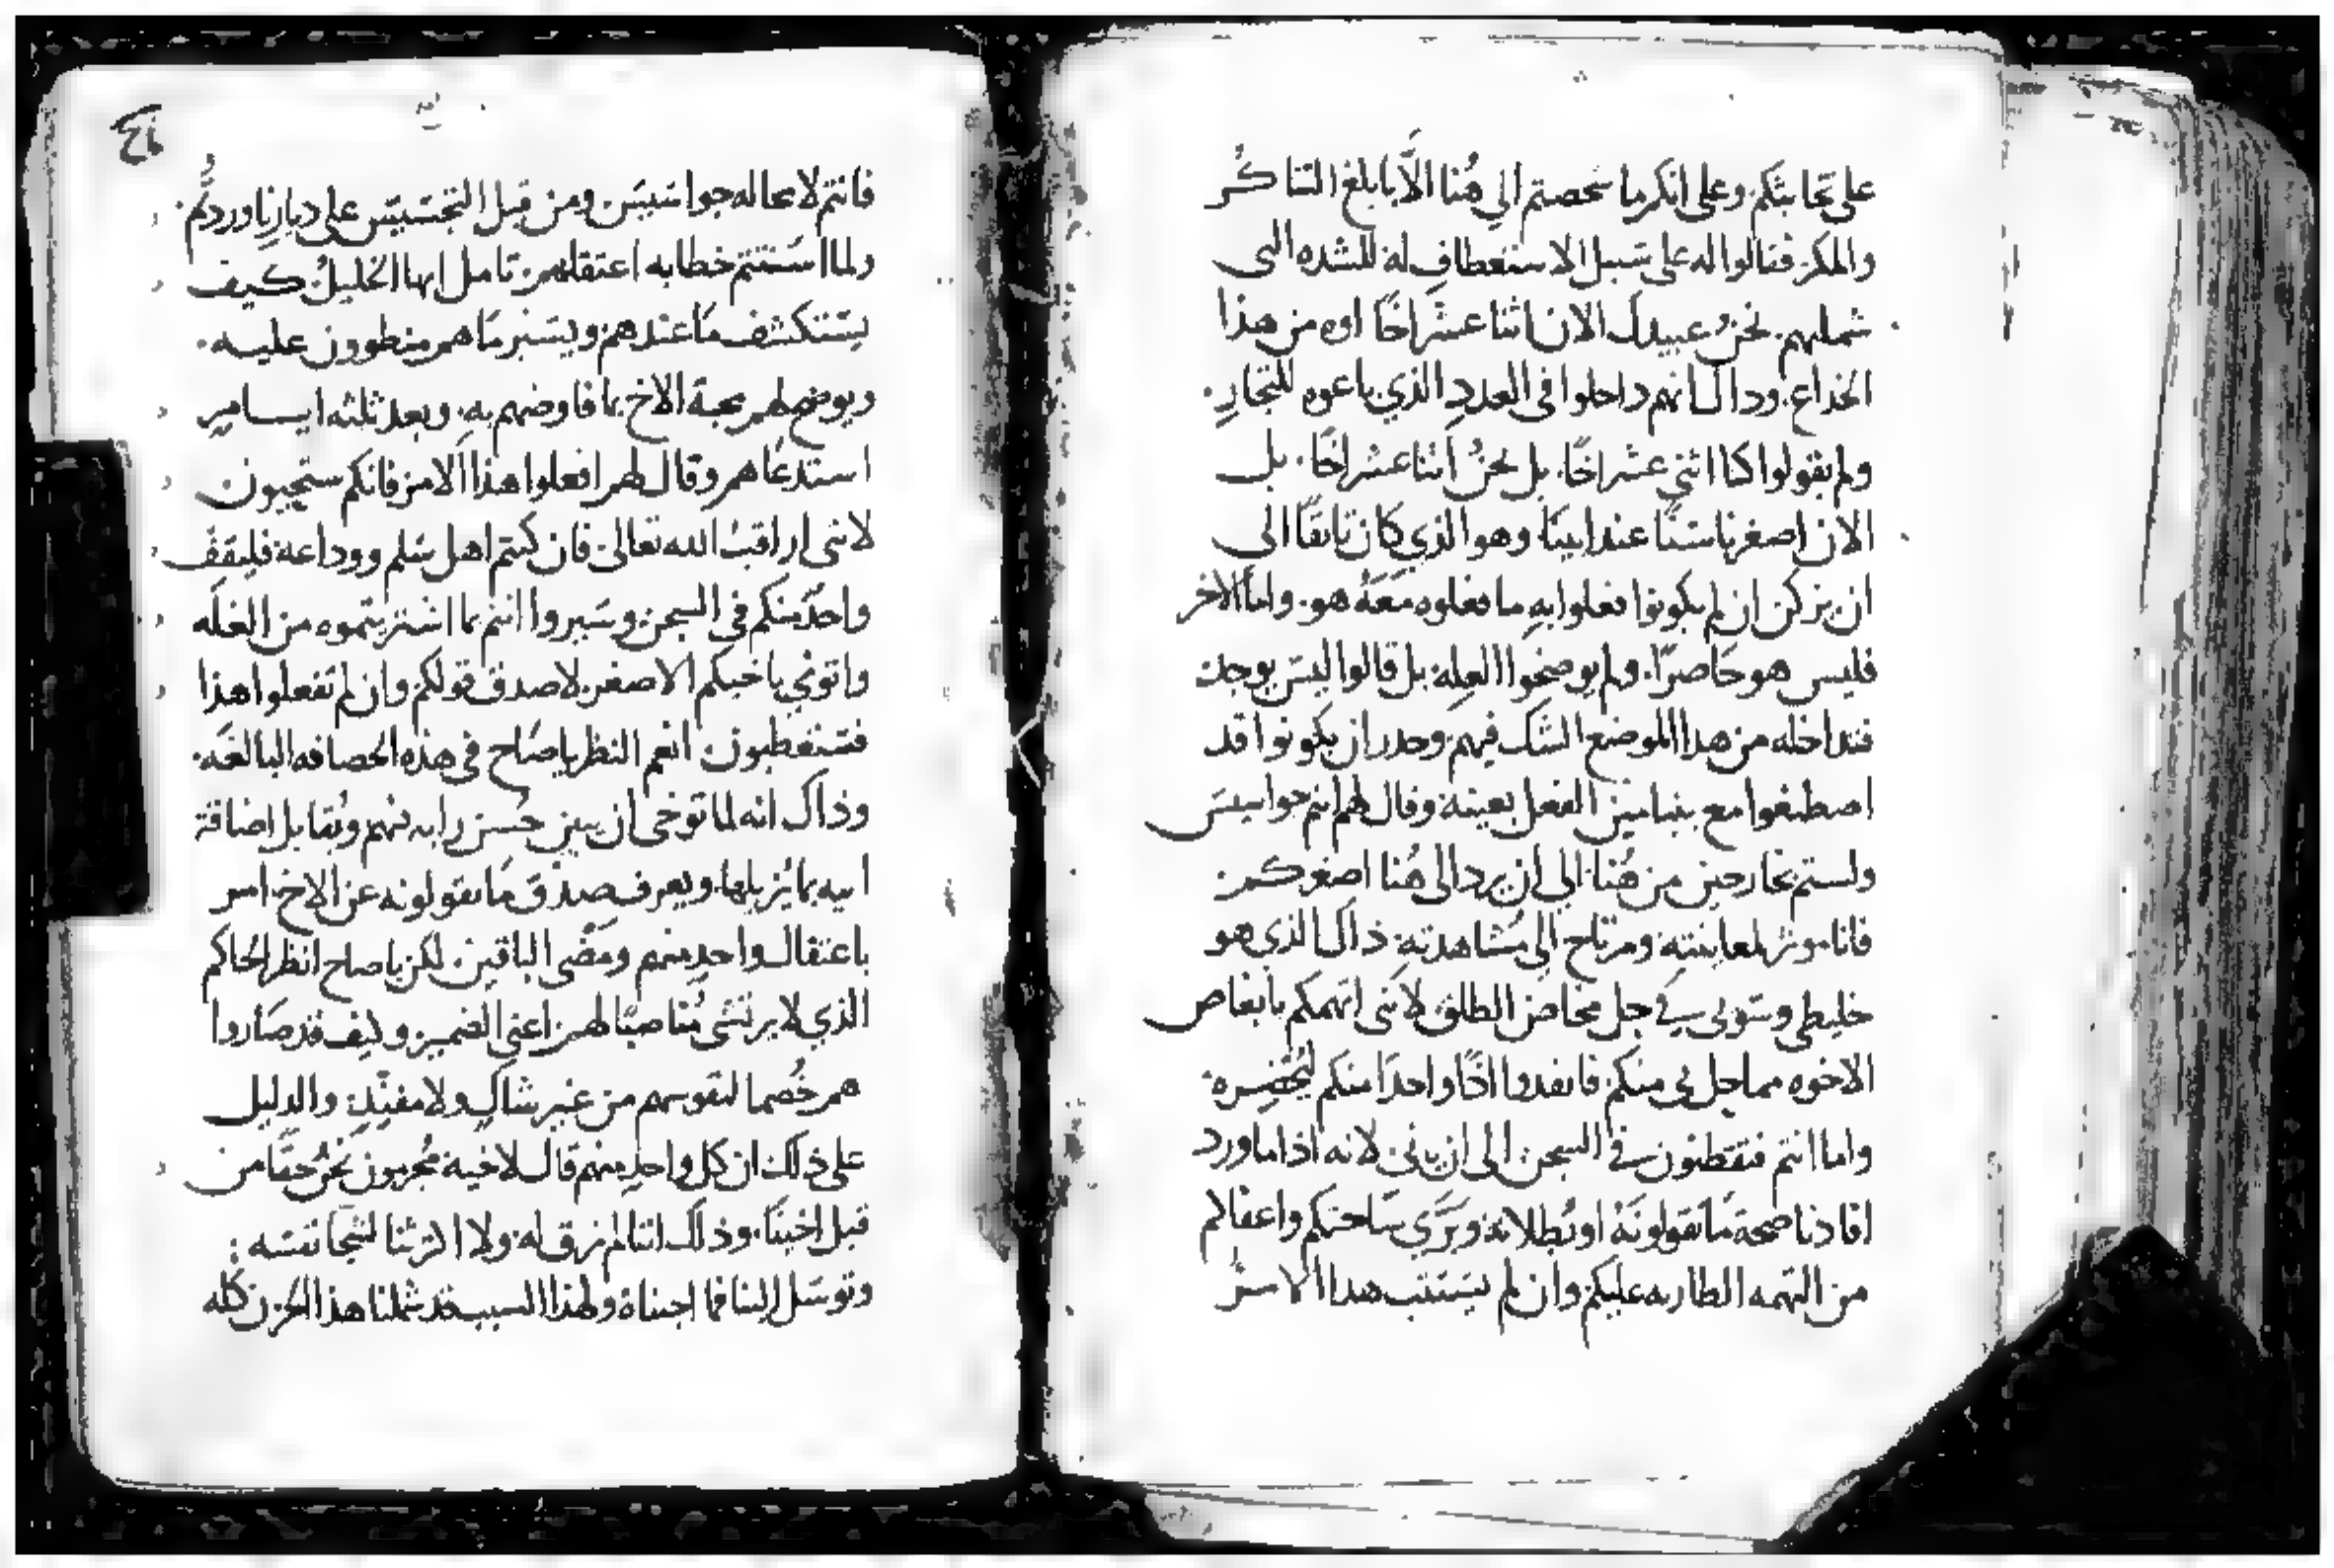 على تحابتكم وعلى انكم ما شخصتم الي هُنا الَّا بابلغ التناكُر
والمكر فقالوا له على سَبيل الاستعطافِ له للشده التى
شملتهم. نحنُ عبيدك الان اثنا عشر اخًا اوه من هذا
الخداع. وداك انهم داخلوا فى العددِ الذي باعوه للتجارِ.
ولم يقولوا كنا اثني عشر اخًا. بل نحنُ اثنا عشر اخًا. بل
الان اصغرنا سنًّا عند ابينَا وهو الذي كان تايقًا الى
ان يزكن ان لم يكونوا فعلوا بهِ ما فعلوه مَعَهُ هو. واما الاخر
فليس هو حَاصرًا. ولم يوضحوا العله بل قالوا ليسَ يوجد
فتداخله من هدا الموضع الشك فيهم وحدر ان يكونوا قد
اصطنعوا مع بنيامين الفعل بعينه وقال لهم انتم جواسِيسَ
ولستم بخارجين من هُنا الي ان يرد الى هُنا اصغركم
فانا موثر لمعاينتهِ ومرتاح الي مُشاهدتهِ ذاك الذي هو
خليطي وسَوبى في جل مخاض الطلق لاننى اتهمكم بابغاض
الاخوه مما حل بى منكم فانفدوا اخًا واحدًا منكم ليُحضِره.
واما انتم فتقطنون في السجن الى ان ياتى لانه اذا ما ورد
افادنا صحة مَا تقولونَهُ او بُطلانه ويَرَي سَاحتكم واعفاكم
من التهمه الطاربه عليكم وان لم يَستتب هدا الامر
٤٦
فانتم لا محاله جواسَيسَ ومن قبل التجسيسَ على ديارِنا وردتُم.
ولما استتم خطابه اعتقلهم تامل ايها الخليلُ كيف
يستكشف مَا عندهم ويسبر مَا هم منطوون عليه.
ويوضح لهم محبة الاخ بما فاوضهم به. وبعد ثلثه ايام
استدعَاهم وقال لهم افعلوا هذا الامر فانكم ستحيون
لاننى اراقبُ الله تعالى فان كنتم اهل سَلم ووداعة فليقف
واحدٌ منكم في السجن وسَيروا انتم بما اشتريتموه من الغلَه
واتوني باخيكم الاصغر لاصدق قولكم وان لم تفعلوا هذا
فستعطبون انعم النظر يا صَاح في هذه الحصافه البالغَه.
وذاك انه لما توخى ان يبين حُسن رايه فيهم ويُقابل اضاقة
ابيه بما يُزيلها ويعرف صدق مَا يقولونه عن الاخ. امر
باعتقال واحدٍ منهم ومَضَى الباقين لكن يا صاح انظر الحاكم
الذي لا يرتشى مُناصبًا لهم اعني الضمير وكيف قد صَاروا
هم خُصما لنفوسهم من غير شاكٍ ولا مفنِّدٍ والدليل
على ذلك ان كل واحدٍ منهم قال لاخيه مُجرمون نحنُ حقًا من
قبل اخينَا. وذلك اننا لم نرق له. ولا اكترثنا لشجَا نفسَه:
وتوسَل الينا فما اجبناهُ ولهذا السبب قد شملنا هذا الحزن كله